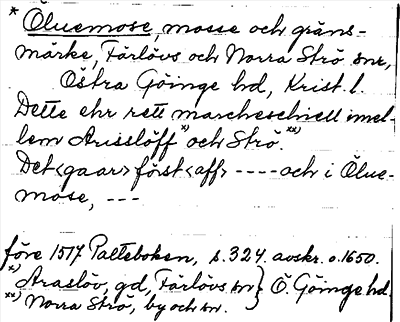 * Öluemose, mosse och gräns-
märke, Färlövs och Norra Strö snr,
Östra Göinge hd, Krist. l.
Dette ehr rett marcheschiell imel-
lem Arisslöff *) och Strö. **)
Det <gaar> först <aff> ---- och i Ölue-
mose, ---
före 1517 Palteboken, s. 324. avskr. o. 1650.
*) Araslöv, gd, Färlövs sn } Ö. Göinge hd.
**) Norra Strö, by och sn.